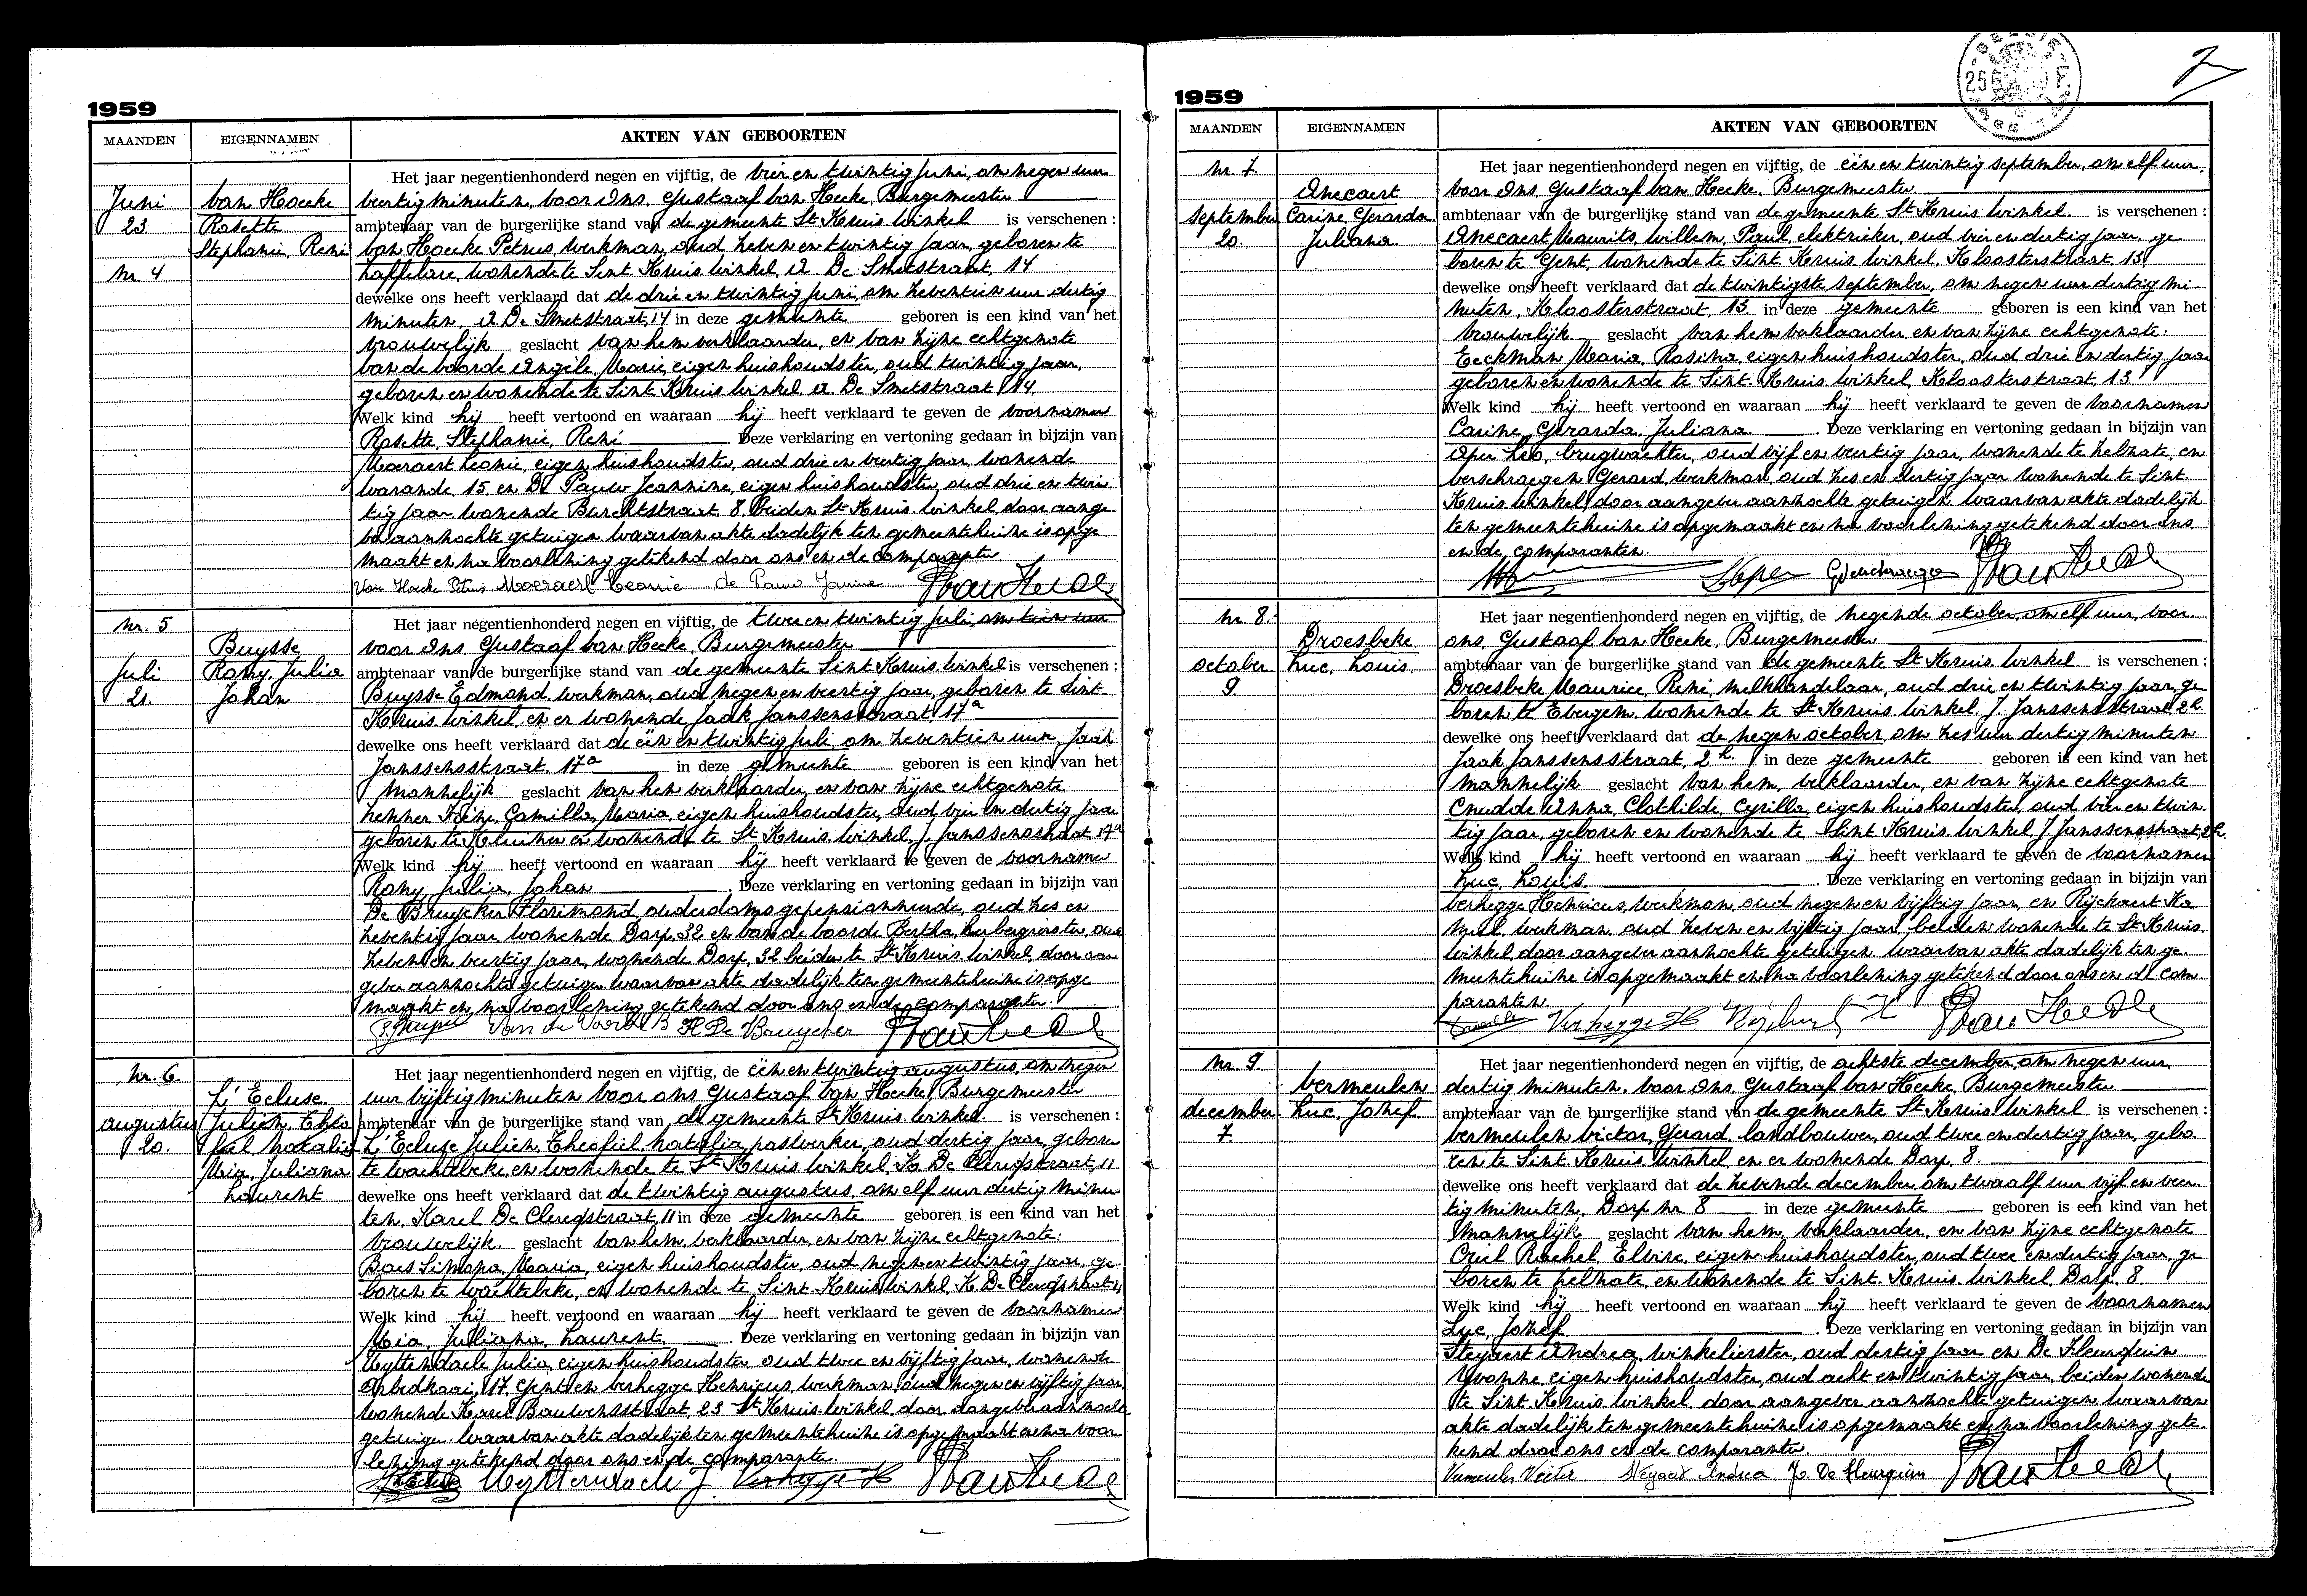 1959
MAANDEN EIGENNAMEN AKTEN VAN GEBOORTEN
Juni
23
nr. 4
Van Hoecke
Rosette
Stephanie, René
Het jaar negentienhonderd negen en vijftig, de vier en twintig Juni, om negen uur
veertig minuten, voor Ons, Gustaaf Van Hecke, Burgemeester
ambtenaar van de burgerlijke stand van de gemeente St Kruis Winkel is verschenen :
Van Hoecke Petrus, werkman, oud zeven en twintig jaar, geboren te
Zaffelare, wonende te Sint Kruis Winkel, A. De Smetstraat, 14
dewelke ons heeft verklaard dat de drie en twintig Juni, om zeventien uur dertig
minuten, A. De Smetstraat, 14 in deze gemeente geboren is een kind van het
vrouwelijk geslacht van hem verklaarder, en van zijne echtgenote
Van de Voorde Angèle, Marie, eigen huishoudster, oud twintig jaar,
geboren en wonende te Sint Kruis Winkel A. De Smetstraat, 14.
Welk kind hij heeft vertoond en waaraan hij heeft verklaard te geven de voornamen
Rosette, Stephanie, René Deze verklaring en vertoning gedaan in bijzijn van
Moeraert Leonie, eigen huishoudster, oud drie en veertig jaar, wonende
Warande, 15 en De Pauw Jeannine, eigen huishoudster, oud drie en twin
tig jaar, wonende Burchtstraat, 8, beiden St Kruis Winkel, door aange
ver aanzochte getuigen waarvan akte dadelijk ten gemeentehuize is opge
maakt en na voorlezing getekend door ons en de comparanten
Van Hoecke Petrus Moeraert Leonie de Pauw Janine
nr. 5
Juli
21.
Buysse
Rony, Julia
Johan
Het jaar negentienhonderd negen en vijftig, de twee en twintig juli, om tien uur
voor Ons, Gustaaf Van Hecke, Burgemeester
ambtenaar van de burgerlijke stand van de gemeente Sint Kruis Winkel is verschenen :
Buysse Edmond, werkman, oud negen en veertig jaar, geboren te Sint
Kruis Winkel, en er wonende Jaak Janssensstraat 17a
dewelke ons heeft verklaard dat de één en twintig juli om zeventien uur, Jaak
Janssensstraat, 17a in deze gemeente geboren is een kind van het
mannelijk geslacht van hem verklaarder, en van zijne echtgenote
Camilla, Maria, eigen huishoudster, oud dertig jaar
geboren te Kluizen en wonende te St Kruis Winkel, J. Janssensstraat 17a
Welk kind hij heeft vertoond en waaraan hij heeft verklaard te geven de voornamen
Rony, Julia, Johan Deze verklaring en vertoning gedaan in bijzijn van
De Bruycker Florimond, ouderdomsgepensionneerde, oud zes en
zeventig jaar wonende Dorp, 32 en Van de Voorde Bertha, herbergierster, oud
zeven en veertig jaar, wonende Dorp, 32 beiden te St Kruis Winkel, door aan
gever aanzochte getuigen waarvan akte dadelijk ten gemeentehuize is opge
maakt en na voorlezing getekend door ons en de comparanten.
Van de Voorde B De Bruycker
nr. 6.
augustus
20.
L' Ecluse
Julien, Theo
fiel Natalia
Mia, Juliana
Laurent
Het jaar negentienhonderd negen en vijftig, de één en twintig augustus, om negen
uur vijftig minuten voor ons Gustaaf Van Hecke, Burgemeester
ambtenaar van de burgerlijke stand van de gemeente St Kruis Winkel is verschenen :
L' Ecluse Julien, Theofiel, Natalia, paswerker, oud dertig jaar, geboren
te Wachtebeke, en wonende te St Kruis Winkel, K. De Clercqstraat, 11
dewelke ons heeft verklaard dat de twintig augustus, om elf uur dertig minu
ten, Karel De Clercqstraat, 11 in deze gemeente geboren is een kind van het
vrouwelijk geslacht van hem, verklaarder, en van zijne echtgenote:
Baes Simona, Maria, eigen huishoudster, oud negen en twintig jaar, ge
boren te Wachtebeke, en wonende te Sint Kruis Winkel, K. De Clercqstraat 11,
Welk kind hij heeft vertoond en waaraan hij heeft verklaard te geven de voornamen
Mia, Juliana, Laurent. Deze verklaring en vertoning gedaan in bijzijn van
Uyttendaele Julia, eigen huishoudster oud twee en vijftig jaar, wonende
17, Gent en Verhegge Henricus, werkman, oud negen en vijftig jaar,
wonende Karel Bauwensstraat, 23 St Kruis Winkel, door aangever aanzochte
getuigen. Waarvan akte dadelijk ten gemeentehuize is opgemaakt en na voor
lezing getekend door ons en de comparanten.
Uyttendaele J. Verhegge H
1959
MAANDEN EIGENNAMEN AKTEN VAN GEBOORTEN
nr. 7.
september
20.
Anecaert
Carine, Gerarda
Juliana
Het jaar negentienhonderd negen en vijftig, de één en twintig september, om elf uur,
voor Ons, Gustaaf Van Hecke, Burgemeester
ambtenaar van de burgerlijke stand van de gemeente St Kruis Winkel. is verschenen :
Anecaert Maurits, Willem, Paul, elektrieker, oud vier en dertig jaar, ge
boren te Gent, wonende te Sint Kruis Winkel, Kloosterstraat 13
dewelke ons heeft verklaard dat de twintigste september, om negen uur dertig mi-
nuten, Kloosterstraat, 13 in deze gemeente geboren is een kind van het
vrouwelijk geslacht van hem verklaarder, en van zijne echtgenote:
Eeckman Maria, Rosina, eigen huishoudster, oud drie en dertig jaar
geboren en wonende te Sint Kruis Winkel, Kloosterstraat, 13
Welk kind hij heeft vertoond en waaraan hij heeft verklaard te geven de voornamen
Carine, Gerarda, Juliana. Deze verklaring en vertoning gedaan in bijzijn van
Leo, brugwachter, oud vijf en veertig jaar, wonende te Zelzate, en
Verschraegen Gerard, werkman, oud zes en dertig jaar wonende te Sint
Kruis Winkel, door aangever aanzochte getuigen. Waarvan akte dadelijk
ten gemeentehuize is opgemaakt en na voorlezing getekend door ons
en de comparanten.
nr. 8.
october
9.
Droesbeke
Luc, Louis.
Het jaar negentienhonderd negen en vijftig, de negende october, om elf uur, voor
ons, Gustaaf Van Hecke, Burgemeester
ambtenaar van de burgerlijke stand van de gemeente St Kruis Winkel is verschenen :
Droesbeke Maurice, René, melkhandelaar, oud drie en twintig jaar, ge
boren te Evergem, wonende te St Kruis Winkel, J. Janssensstraat 2h.
dewelke ons heeft verklaard dat de negen october, om zes uur dertig minuten
Jaak Janssensstraat, 2h. in deze gemeente geboren is een kind van het
mannelijk geslacht van hem, verklaarder, en van zijne echtgenote
Cnudde Anna, Clothilde, Cyrilla, eigen huishoudster, oud vier en twin
tig jaar, geboren en wonende te Sint Kruis Winkel J. Janssensstraat, 2h.
Welk kind hij heeft vertoond en waaraan hij heeft verklaard te geven de voornamen
Luc, Louis. Deze verklaring en vertoning gedaan in bijzijn van
Verhegge Henricus, werkman, oud negen en vijftig jaar, en Rijckaert Ka
mil, werkman, oud zeven en vijftig jaar, beiden wonende te St Kruis
Winkel door aangever aanzochte getuigen. Waarvan akte dadelijk ten ge
meentehuize is opgemaakt en na voorlezing getekend door ons en de com
paranten.
Verhegge H
nr. 9.
december
7.
Vermeulen
Luc, Jozef
Het jaar negentienhonderd negen en vijftig, de achtste december, om negen uur,
dertig minuten. voor Ons, Gustaaf Van Hecke, Burgemeester
ambtenaar van de burgerlijke stand van de gemeente St Kruis Winkel is verschenen :
Vermeulen Victor, Gerard, landbouwer, oud twee en dertig jaar, gebo
ren te Sint Kruis Winkel, en er wonende Dorp, 8.
dewelke ons heeft verklaard dat de zevende december, om twaalf uur vijf en veer
tig minuten, Dorp nr. 8 in deze gemeente geboren is een kind van het
mannelijk geslacht van hem, verklaarder, en van zijne echtgenote
Criel Rachel, Elvire, eigen huishoudster, oud twee en dertig jaar, ge
boren te Zelzate, en wonende te Sint Kruis Winkel, Dorp, 8
Welk kind hij heeft vertoond en waaraan hij heeft verklaard te geven de voornamen
Luc, Jozef Deze verklaring en vertoning gedaan in bijzijn van
Steyaert Andrea, winkelierster, oud dertig jaar en De Fleurquin
Yvonne, eigen huishoudster, oud acht en twintig jaar, beiden wonende
te Sint Kruis Winkel door aangever aanzochte getuigen waarvan
akte dadelijk ten gemeentehuize is opgemaakt en na voorlezing gete-
kend door ons en de comparanten.
Vermeulen Victor Steyaert Andrea Y. De Fleurquin